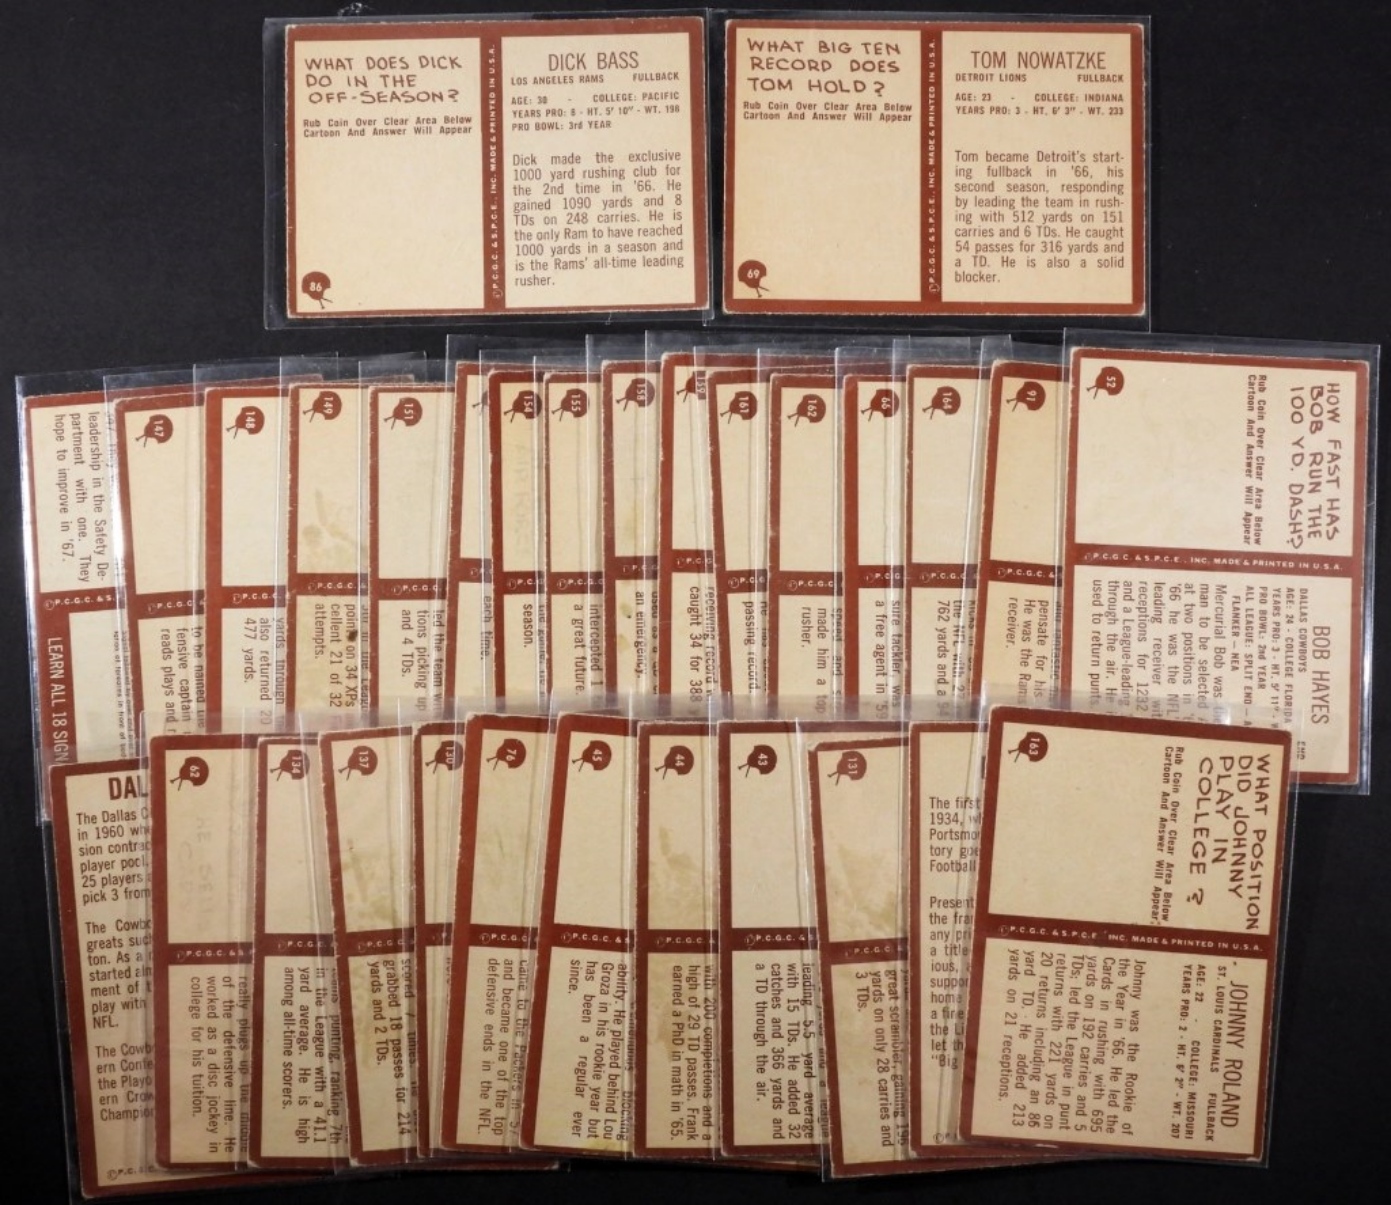 WHAT DOES DICK
DO IN THE
OFF-SEASON?
Rub Coin Over Clear Area Below
Cartoon And Answer Will Appear
86
©P.C.G.C. & S.P.C.E., INC. MADE & PRINTED IN U.S.A.
DICK BASS
LOS ANGELES RAMS FULLBACK
AGE: 30 - COLLEGE: PACIFIC
YEARS PRO: 8 - HT. 5' 10" - WT. 198
PRO BOWL: 3rd YEAR
Dick made the exclusive
1000 yard rushing club for
the 2nd time in '66. He
gained 1090 yards and 8
TDs on 248 carries. He is
the only Ram to have reached
1000 yards in a season and
is the Rams' all-time leading
rusher.
WHAT BIG TEN
RECORD DOES
TOM HOLD?
Rub Coin Over Clear Area Below
Cartoon And Answer Will Appear
69
©P.C.G.C. & S.P.C.E., INC. MADE & PRINTED IN U.S.A.
TOM NOWATZKE
DETROIT LIONS FULLBACK
AGE: 23 - COLLEGE: INDIANA
YEARS PRO: 3 - HT. 6' 3" - WT. 233
Tom became Detroit's start-
ing fullback in '66, his
second season, responding
by leading the team in rush-
ing with 512 yards on 151
carries and 6 TDs. He caught
54 passes for 316 yards and
a TD. He is also a solid
blocker.
leadership in the Safety De-
partment with one. They
hope to improve in '67.
©P.C.G.C. & S.
LEARN ALL 18 SIGN
147
©P.C.G.C.
to be named
fensive captain
reads plays and
148
©P.C.G.C.
yards through
also returned 29
477 yards.
149
©P.C.G.C. &
points on 34 XPs
cellent 21 of 32
attempts.
151
©P.C.G.C.
led the team wi
tions picking up
and 4 TDs.
each time.
154
©P.C.G.
season.
155
©P.C.G.
intercepted 1
a great future.
158
©P.C.G.C.
an emergency.
159
©P.C.G.
receiving record
caught 34 for 388 y
161
©P.C.G.
passing record.
162
©P.C.G.C.
speed and
made him a top
rusher.
66
©P.C.G.
sure tackler, was
a free agent in '59
164
©P.C.G.C.
762 yards and a 94
91
©P.C.G.C.
pensate for his
He was the Rams
receiver.
52
HOW FAST HAS
BOB RUN THE
100 YD. DASH?
Rub Coin Over Clear Area Below
Cartoon And Answer Will Appear
©P.C.G.C. & S.P.C.E., INC. MADE & PRINTED IN U.S.A.
BOB HAYES
DALLAS COWBOYS END
AGE: 24 - COLLEGE FLORIDA
YEARS PRO: 3 - HT. 5' 11" - W
PRO BOWL: 2nd YEAR
ALL LEAGUE: SPLIT END - A
FLANKER - NEA
Mercurial Bob was the
man to be selected
at two positions in
'66 he was the NFL'
leading receiver wit
receptions for 1232
and a League-leading
through the air. He i
used to return punts.
DAL
The Dallas C
in 1960 whe
sion contrac
player pool.
25 players a
pick 3 from
The Cowbo
greats such
ton. As a
started
ment of t
play with
NFL.
The Cowb
ern Confe
the Playo
ern Crow
Champio
©P.C.
62
©P.C.G.C.
really plugs up the middle
of the defensive line. He
worked as a disc jockey in
college for his tuition.
134
©P.C.G.C.
punting, ranking 7th
in the League with a 41.1
yard average. He is high
among all-time scorers.
137
©P.C.G.C. &
scored 7 times.
grabbed 18 passes for 214
yards and 2 TDs.
130
©P.C.
76
©P.C.G.C.
came to the Packers in '57
and became one of the top
defensive ends in the NFL
45
©P.C.G.C. & S
blocking
ability. He played behind Lou
Groza in his rookie year but
has been a regular ever
since.
44
©P.C.G.C.
with 200 completions and a
high of 29 TD passes. Frank
earned a PhD in math in '65.
43
©P.C.G.C. &
leading 5.5 yard average
with 15 TDs. He added 32
catches and 366 yards and
a TD through the air.
131
©P.C.G.C. & S
great scrambler, gaining 196
yards on only 28 carries and
3 TDs.
The first
1934, w
Portsmo
tory goe
Football
Present
the fra
any pri
a title
ious, a
suppor
home
a fine
the Li
let th
"Big
163
WHAT POSITION
DID JOHNNY
PLAY IN
COLLEGE?
Rub Coin Over Clear Area Below
Cartoon And Answer Will Appear
©P.C.G.C. & S.P.C.E., INC. MADE & PRINTED IN U.S.A.
JOHNNY ROLAND
ST LOUIS CARDINALS FULLBACK
AGE: 22 - COLLEGE: MISSOURI
YEARS PRO: 2 - HT. 6' 2" - WT. 207
Johnny was the Rookie of
the Year in '66. He led the
Cards in rushing with 695
yards on 192 carries and 5
TDs; led the League in punt
returns with 221 yards on
20 returns including an 86
yard TD - He added 213
yards on 21 receptions.